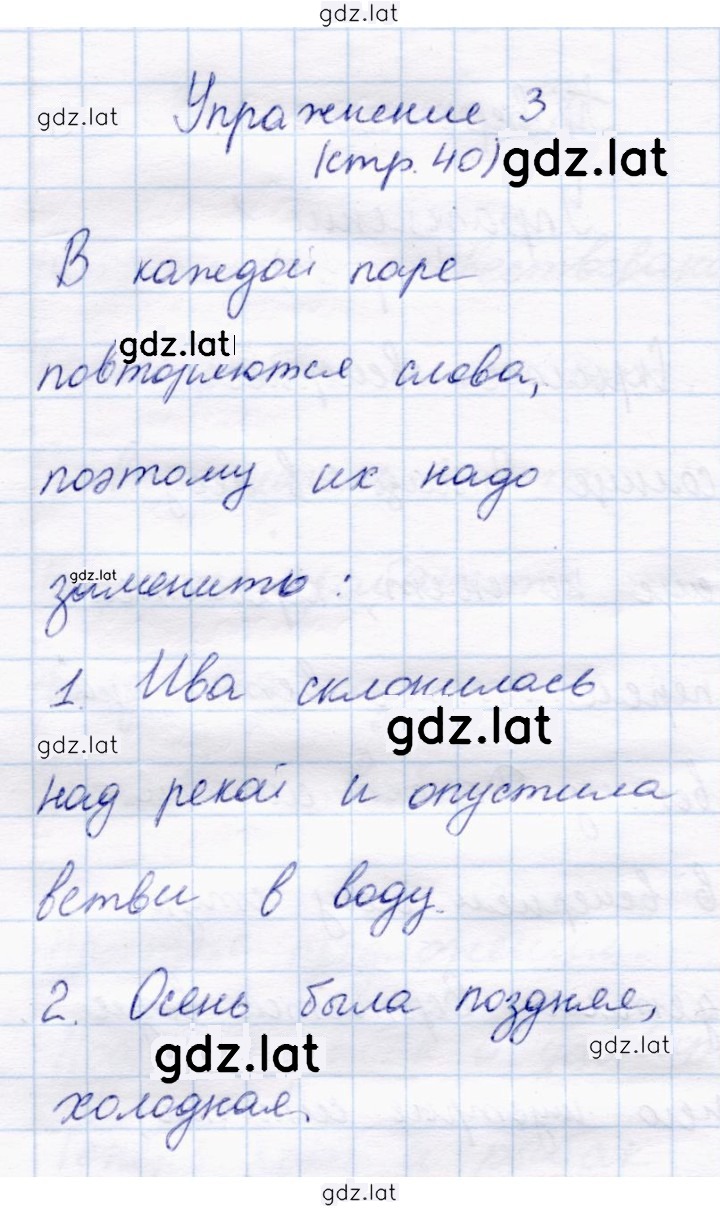 gdz.lat
gdz.lat
Упражнение 3
(стр. 40) gdz.lat
В каждой паре
gdz.lat
повторяются слова,
поэтому их надо
gdz.lat
заменить:
1. Ива склонилась
gdz.lat
gdz.lat
над рекой и опустила
ветви в воду.
2. Осень была поздняя,
gdz.lat
gdz.lat
холодная.
gdz.lat